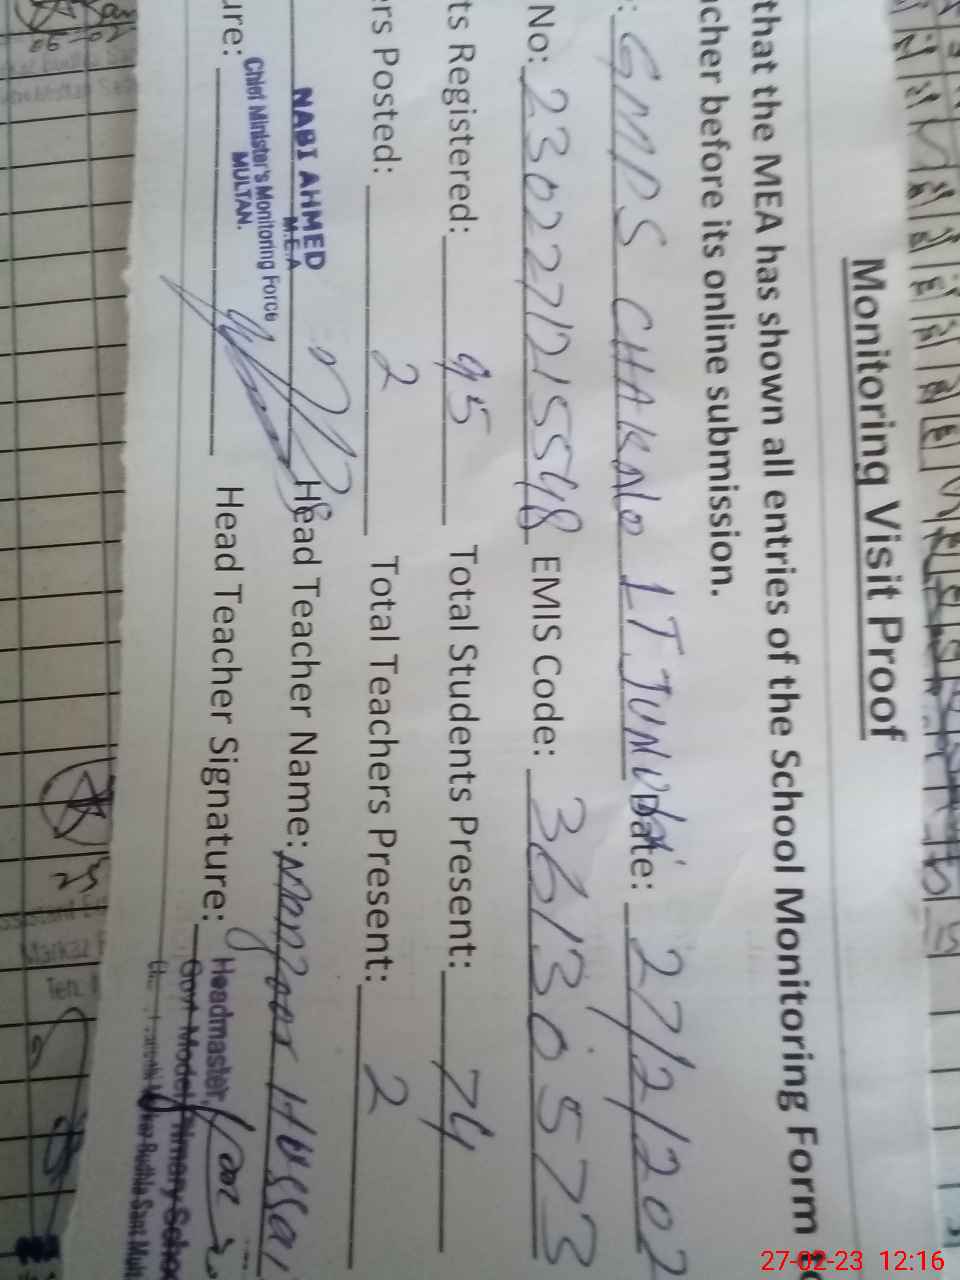 Monitoring Visit Proof
that the MEA has shown all entries of the School Monitoring Form to
cher before its online submission.
: GMPS CHAK No 1 T. Date: 27/2/202
No: 2302271215548 EMIS Code: 36130573
ts Registered: 95 Total Students Present: 74
rs Posted: 2 Total Teachers Present: 2
NABI AHMED Head Teacher Name: Manzoor Hussai
M.E.A
Chief Minister's Monitoring Force
MULTAN.
ure: Head Teacher Signature:
Headmaster,
Govt Model Primary Schoo
27-02-23 12:16